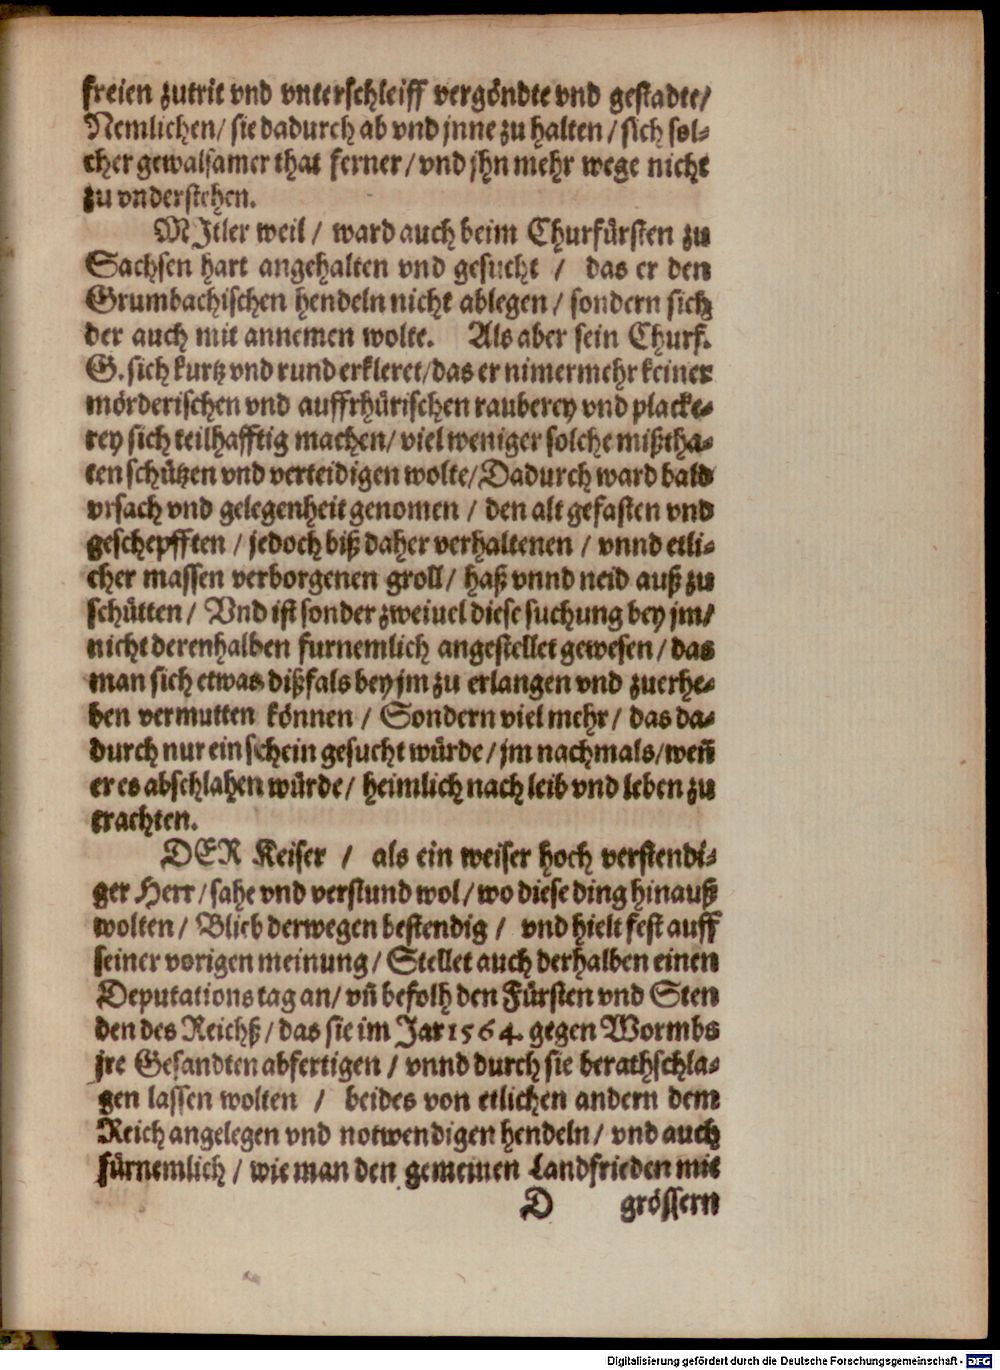 freien zutrit vnd vnterschleiff vergöndte vnd gestadte/
Nemlichen/ sie dadurch ab vnd jnne zu halten/ sich sol-
cher gewalsamer that ferner/ vnd jhn mehr wege nicht
zu vnderstehen.
MJtler weil/ ward auch beim Churfürsten zu
Sachsen hart angehalten vnd gesucht / das er den
Grumbachischen hendeln nicht ablegen/ sondern sich
der auch mit annemen wolte. Als aber sein Churf.
G. sich kurtz vnd rund erkleret/ das er nimermehr keiner
mörderischen vnd auffrhürischen rauberey vnd placke-
rey sich teilhafftig machen/ viel weniger solche mißtha-
ten schützen vnd verteidigen wolte/ Dadurch ward bald
vrsach vnd gelegenheit genomen / den alt gefasten vnd
geschepfften / jedoch biß daher verhaltenen / vnnd etli-
cher massen verborgenen groll/ haß vnnd neid auß zu
schütten/ Vnd ist sonder zweiuel diese suchung bey jm/
nicht derenhalben furnemlich angestellet gewesen/ das
man sich etwas dißfals bey jm zu erlangen vnd zuerhe-
ben vermutten können / Sondern viel mehr/ das da-
durch nur ein schein gesucht würde/ jm nachmals/ weñ
er es abschlahen würde/ heimlich nach leib vnd leben zu
trachten.
DER Keiser / als ein weiser hoch verstendi-
ger Herr/ sahe vnd verstund wol/ wo diese ding hinauß
wolten/ Blieb derwegen bestendig / vnd hielt fest auff
seiner vorigen meinung/ Stellet auch derhalben einen
Deputations tag an/ vñ befolh den Fürsten vnd Sten
den des Reichß/ das sie im Jar 1564. gegen Wormbs
jre Gesandten abfertigen / vnnd durch sie berathschla-
gen lassen wolten / beides von etlichen andern dem
Reich angelegen vnd notwendigen hendeln/ vnd auch
fürnemlich / wie man den gemeinen Landfrieden mit
D grössern
Digitalisierung gefördert durch die Deutsche Forschungsgemeinschaft - DFG